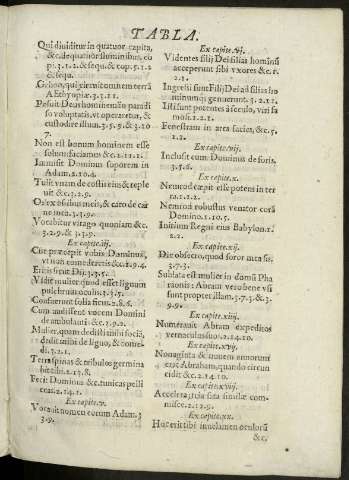 TABLA.
Qui diuiditur in quatuor capita,
&c. de quatuor fluminibus, cũ
pi. 3. 1. 2. & sequ. & cap. 5. 1. 2
& sequ.
Gehon, qui circuit omnem terrã
Æthyopiæ. 3. 3. 11.
Posuit Deus hominem in paradi
so voluptatis, vt operaretur, &
custodiret illum. 3. 5. 9. & 3. 20
7.
Non est bonum hominem esse
solum: faciamus &c. 2. 11. 1.
Immisit Dominus soporem in
Adam. 2. 10. 4.
Tulit vnam de costis eius & reple
uit &c. 3. 2. 9.
Os ex ossibus meis, & caro de car
ne mea. 3. 3. 9.
Vocabitur virago quoniam &c.
3. 2. 9. & 3. 3. 9.
Ex capite. iij.
Cur præcepit vobis Dominus,
vt non comederetis &c. 2. 9. 4.
Eritis sicut Dij. 3. 3. 5.
Vidit mulier quod esset lignum
pulchrum oculis. 3. 3. 5.
Consuerunt folia ficus. 2. 8. 6.
Cum audissent vocem Domini
deambulanti: &c. 3. 9. 2.
Mulier, quam dedisti mihi sociã,
dedit mihi de ligno, & come
di. 3. 2. 1.
Terra spinas & tribulos germina
bit tibi. 2. 13. 8.
Fecit Dominus &c. tunicas pelli
ceas. 2. 14. 1.
Ex capite. v.
Vocauit nomen eorum Adam. 3
3. 9.
Ex capite. vj.
Videntes filij Dei filias hominũ
acceperunt sibi vxores &c. 1.
2. 1.
Ingressi sunt filij Dei ad filias ho
minum qui genuerunt. 3. 2. 11.
Isti sunt potentes à sæculo, viri fa
mosi. 2. 1. 2.
Fenestram in arca facies, &c. 5.
1. 2.
Ex capite. vij.
Inclusit eum Dominus de foris.
3. 5. 6.
Ex capite. x.
Nemrod cæpit esse potens in ter
ra. 2. 1. 2.
Nemrod robustus venator corã
Domino. 1. 10. 5.
Initium Regni eius Babylon. 1.
2. 2.
Ex capite. xij.
Dic obsecro, quod soror mea sis.
3. 7. 3.
Sublata est mulier in domũ Pha
raonis: Abram vero bene vsi
sunt propter illam. 3. 7. 3. & 3.
9. 9.
Ex capite. xiiij.
Numerauit Abram expeditos
vernaculos suos. 2. 14. 10.
Ex capite. xvij.
Nonaginta & nouem annorum
erat Abraham, quando circun
cidit &c. 2. 14. 10.
Ex capite. xviij.
Accelera, tria sata similæ com-
misce. 2. 12. 9.
Ex capite. xx.
Hoc erit tibi in velamen oculorũ
&c.